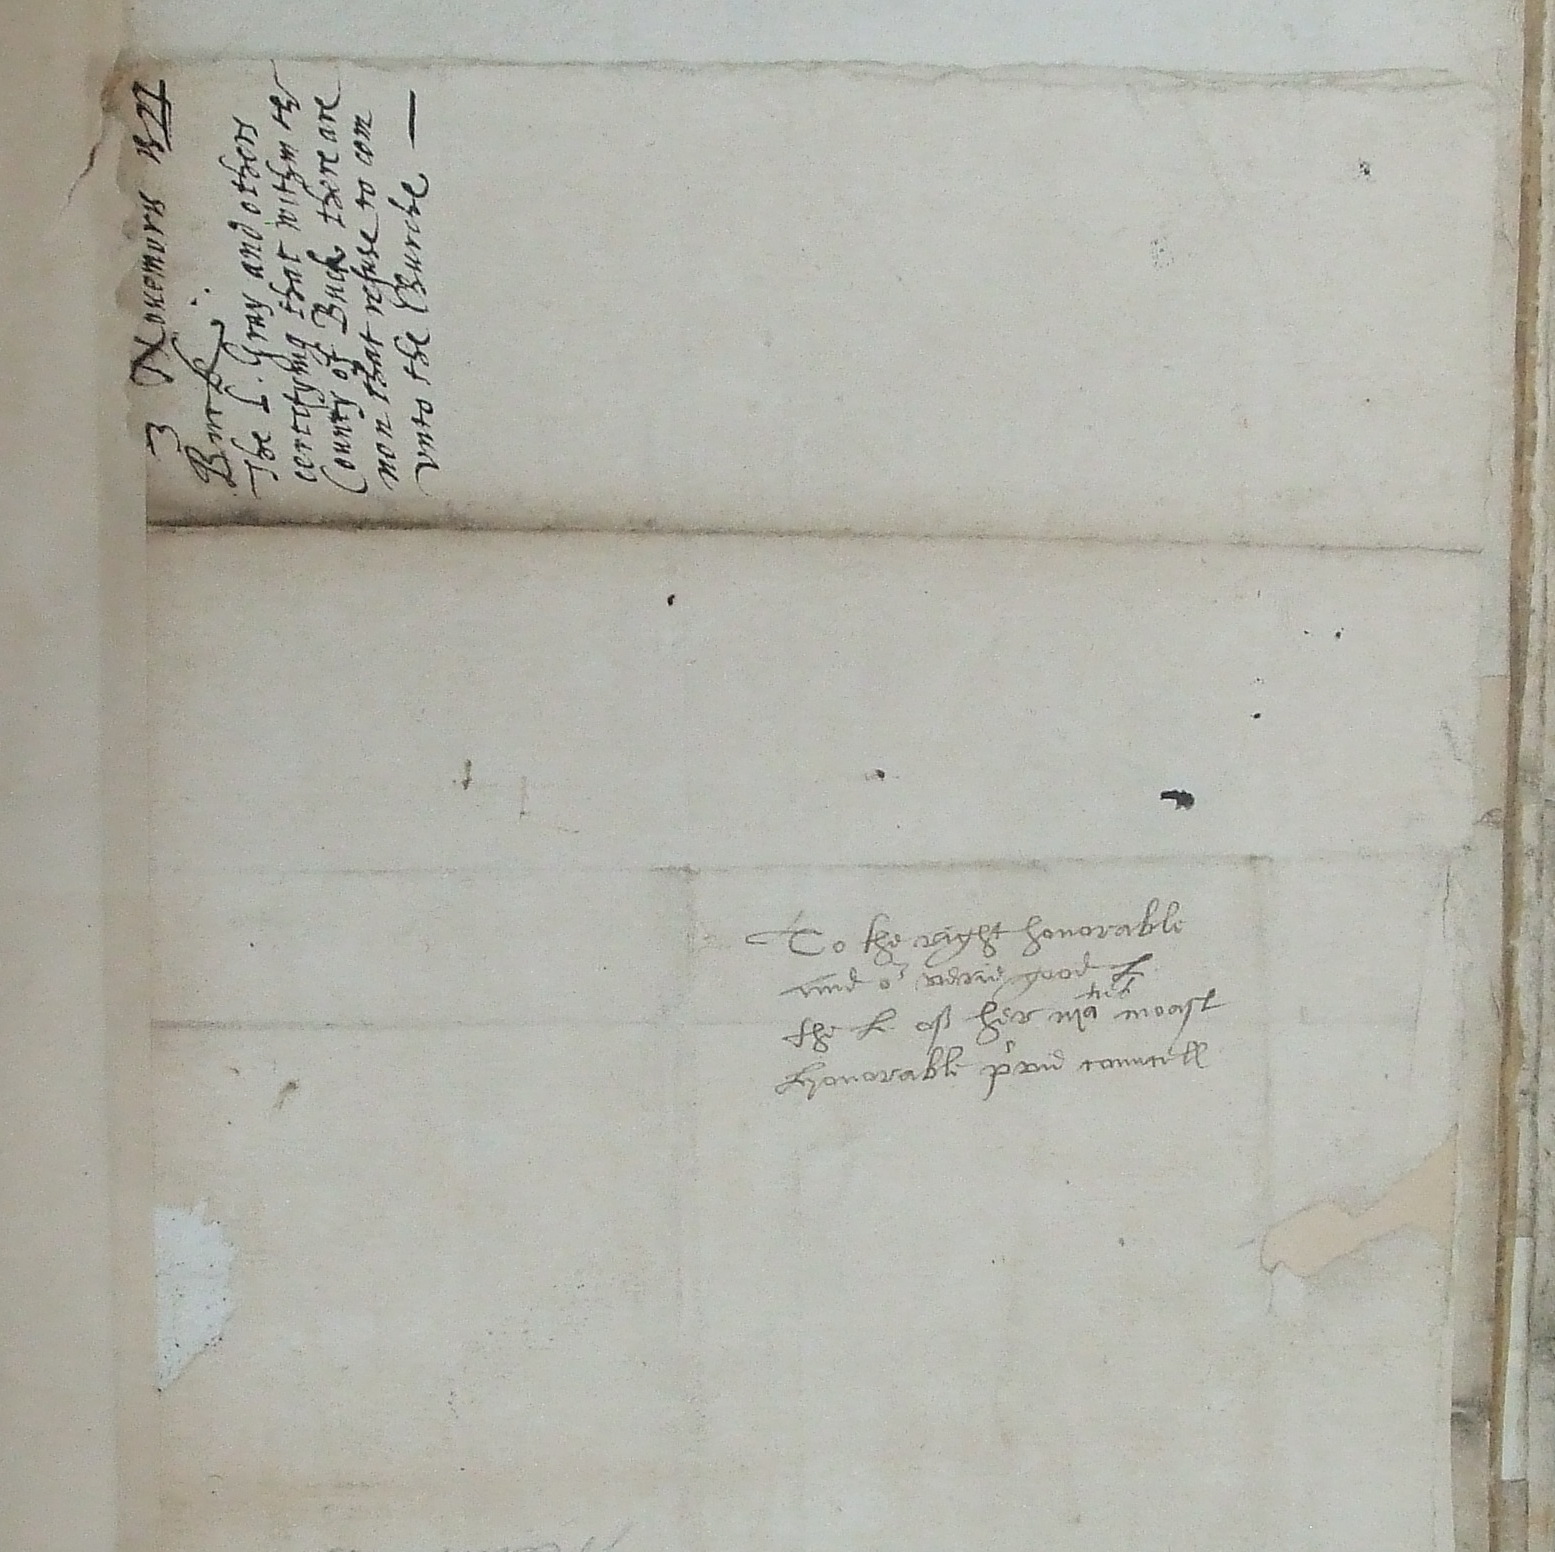 3 Nouembris 1577
Buck.
The L. Gray and others
certifying that within ye
County of Buck there are
non that refuse to com
vnto the Churche —
To the right honorable
and or verie good L
the L of her matis moast
honorable privie councell